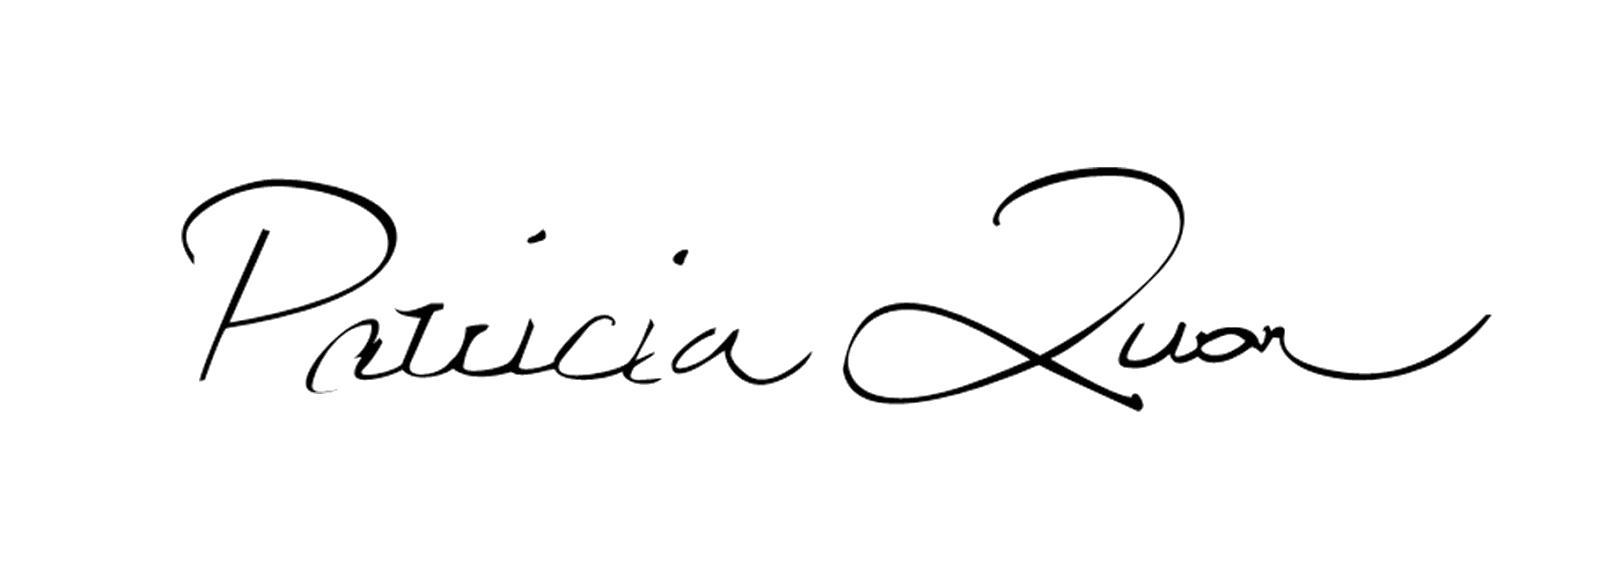 Patricia Quan